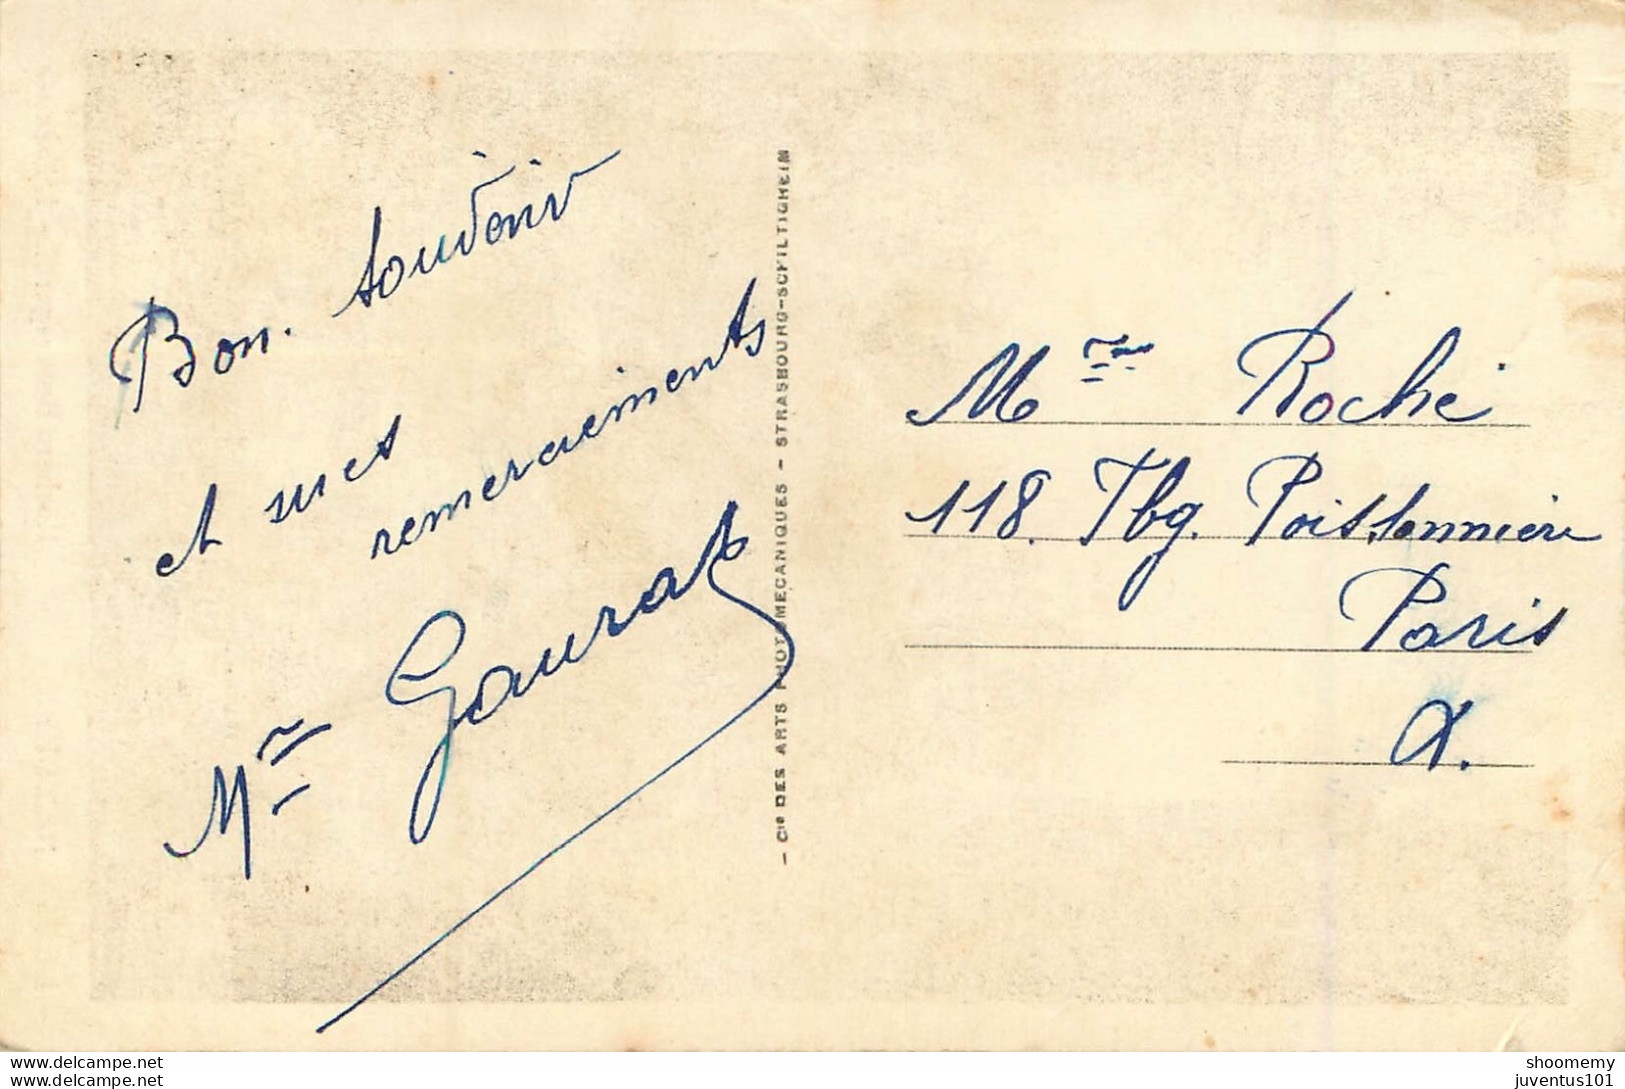 Bon souvenir
et mes
remerciements
Mme Gaurat
- Cie DES ARTS PHOTOMECANIQUES - STRASBOURG-SCHILTIGHEIM
Mme Roché
118. Fbg. Poissonnière
Paris
X.
http://www.delcampe.net
http://www.delcampe.net
shoomemy
juventus101